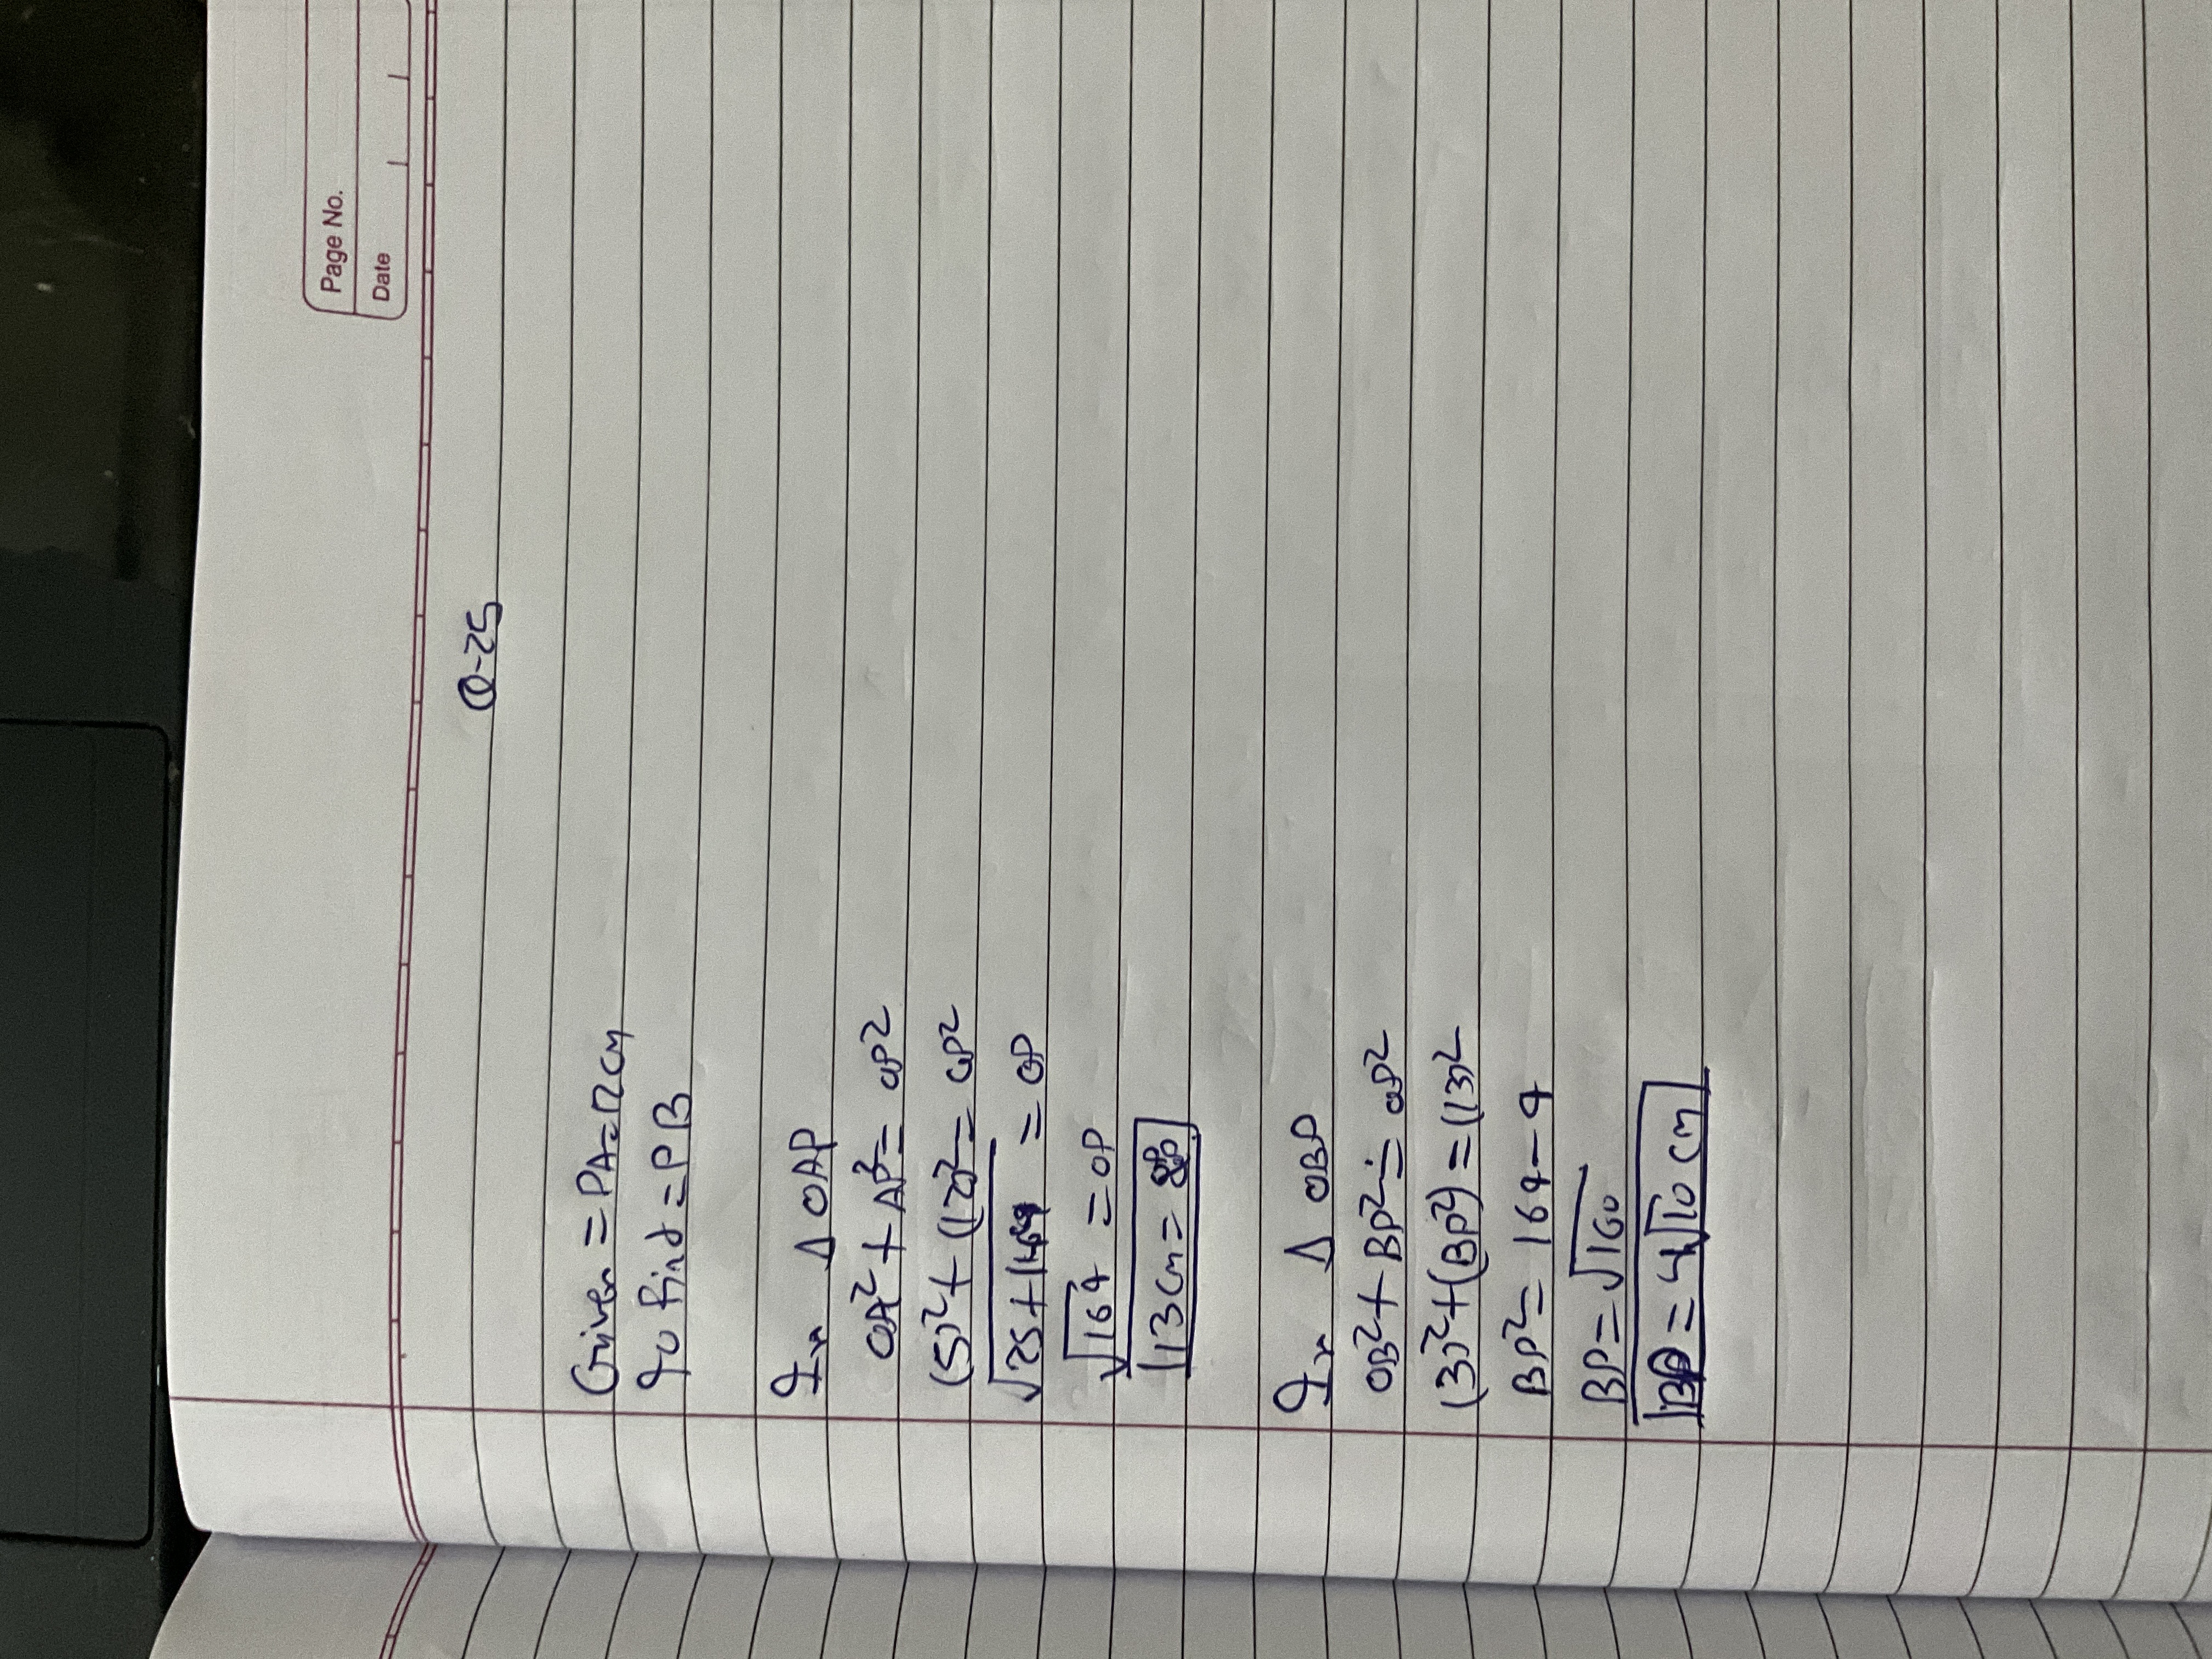 Page No.
Date
Q-25
Given = PA = 12 cm
To find = PB
In Δ OAP
OA² + AP² = OP²
(5)² + (12)² = OP²
√25+144 = OP
√164 = OP
13 cm =
In Δ OBP
OB² + BP² = OP²
(3)² + (BP²) = (13)²
BP² = 164 - 9
BP = √160
BP = 4√10 cm